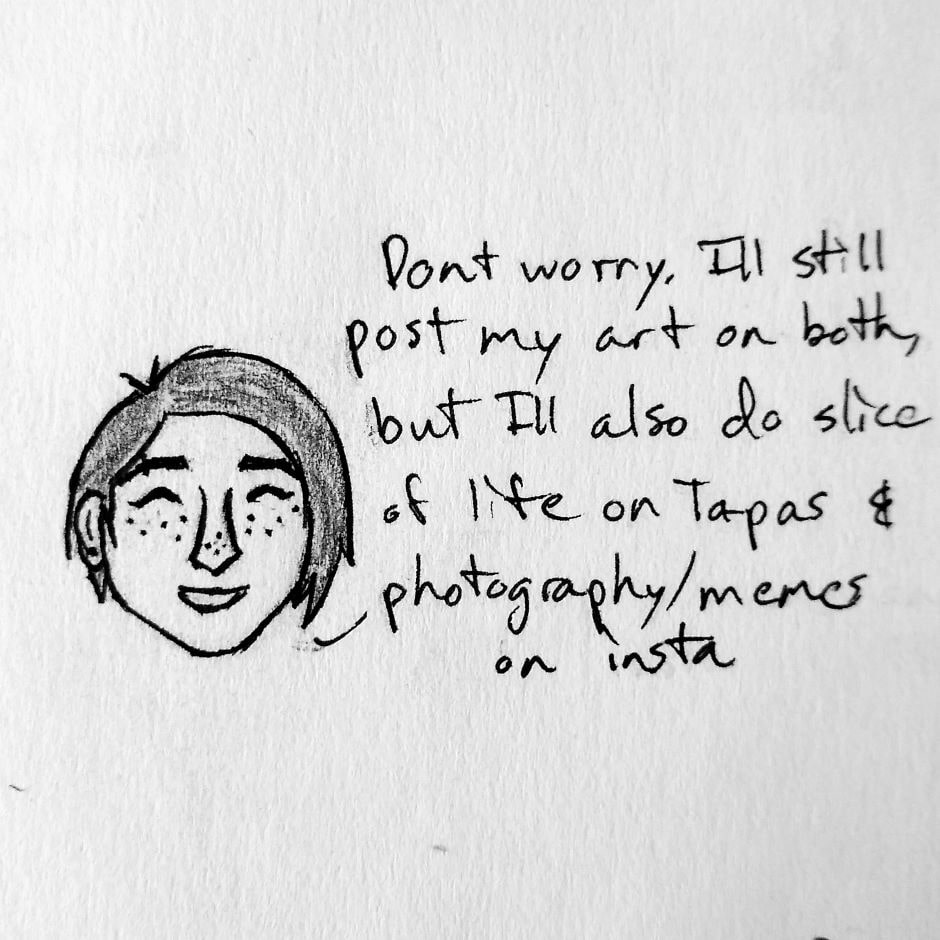 Dont worry, Ill still
post my art on both,
but Ill also do slice
of life on Tapas &
photography/memes
on insta